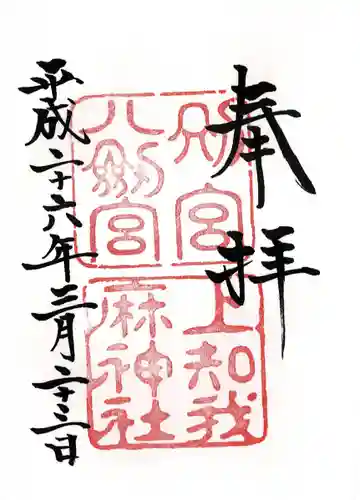 奉拝
別宮
八劔宮
上知我
麻神社
平成二十六年三月二十三日